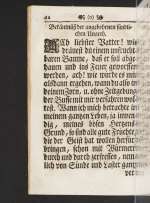 44 (0)
Bekäntnuß der angebohrnen sündli-
chen Unarth.
ACh liebster Vatter! wie
dräuest du einem unfrucht-
baren Baume, daß er soll abge-
hauen und ins Feuer geworffen
werden, ach! wie würde es mir
alsdann ergehen, wann du also in
deinem Zorn, u. ohne
der Busse mit mir verfahren wol-
test. Wann ich mich betrachte in
meinem gantzen Leben, so
dig, meines bösen Hertzens
Grund, so sind alle gute Früchte,
die der Geist hat wollen herfür
bringen, schon mit Würmern
durch und durch zerfressen, nem-
lich von Sünde und Laster gantz
ver-